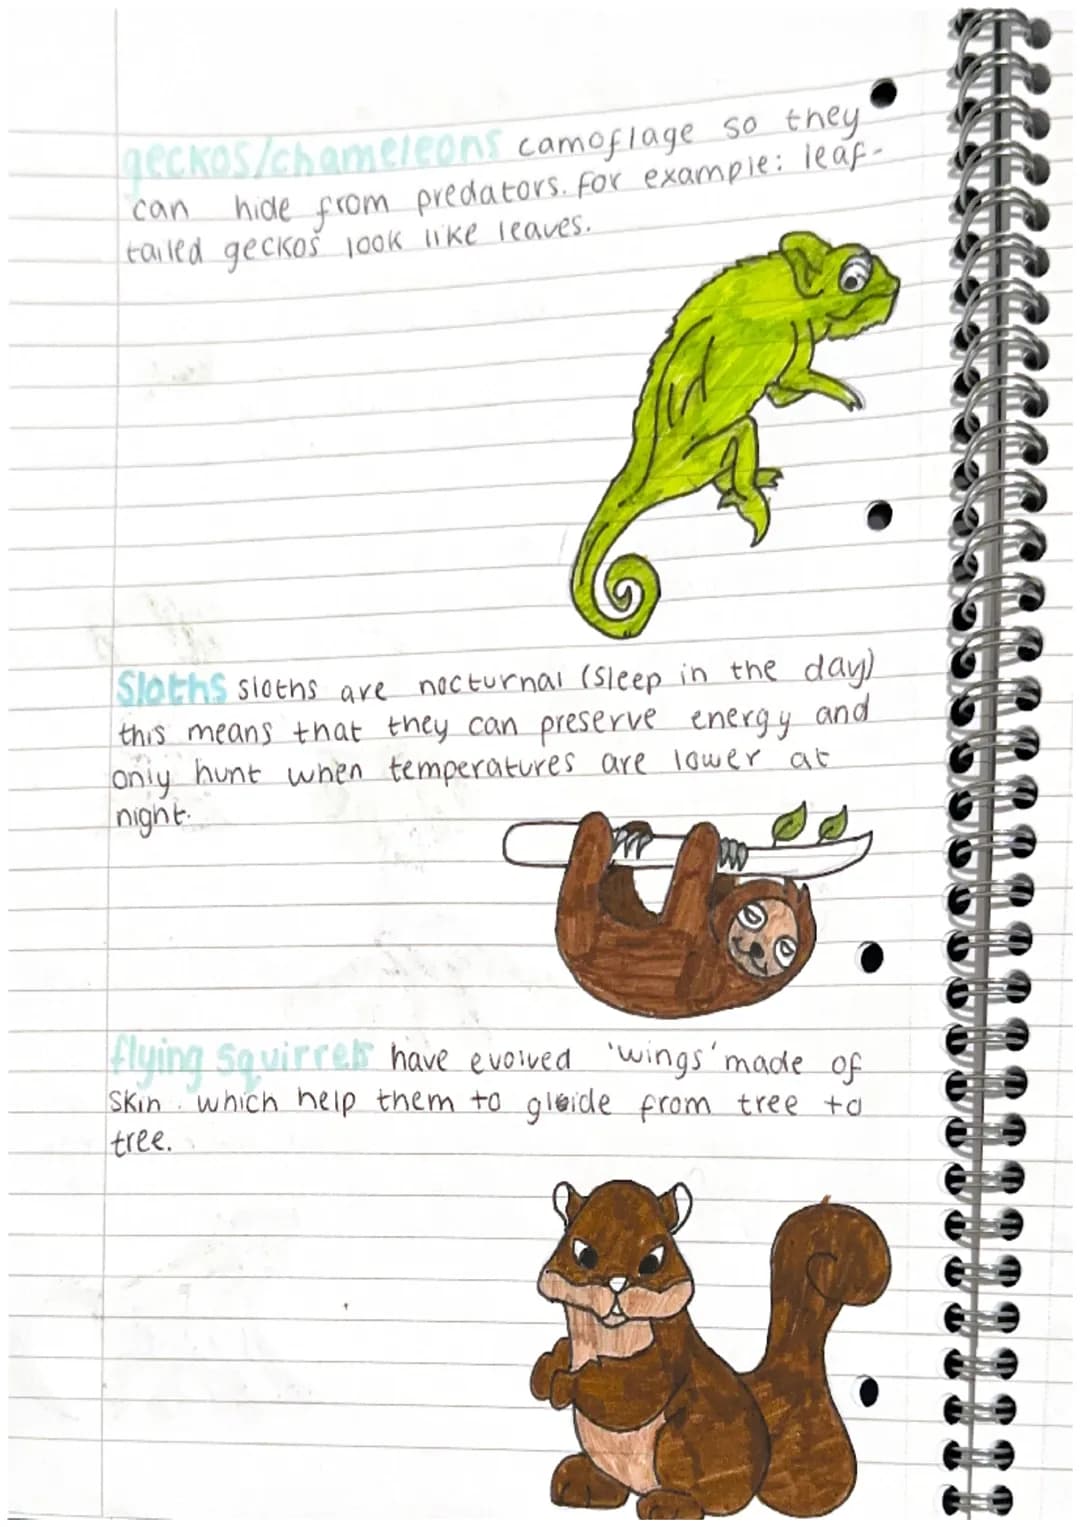 geckos/chameleons camoflage so they
can hide from predators. For example: leaf-
tailed geckos look like leaves.
Sloths sloths are nocturnal (Sleep in the day)
this means that they can preserve energy and
only hunt when temperatures are lower at
night.
flying squirrels have evolved 'wings' made of
skin. which help them to gloide from tree to
tree.